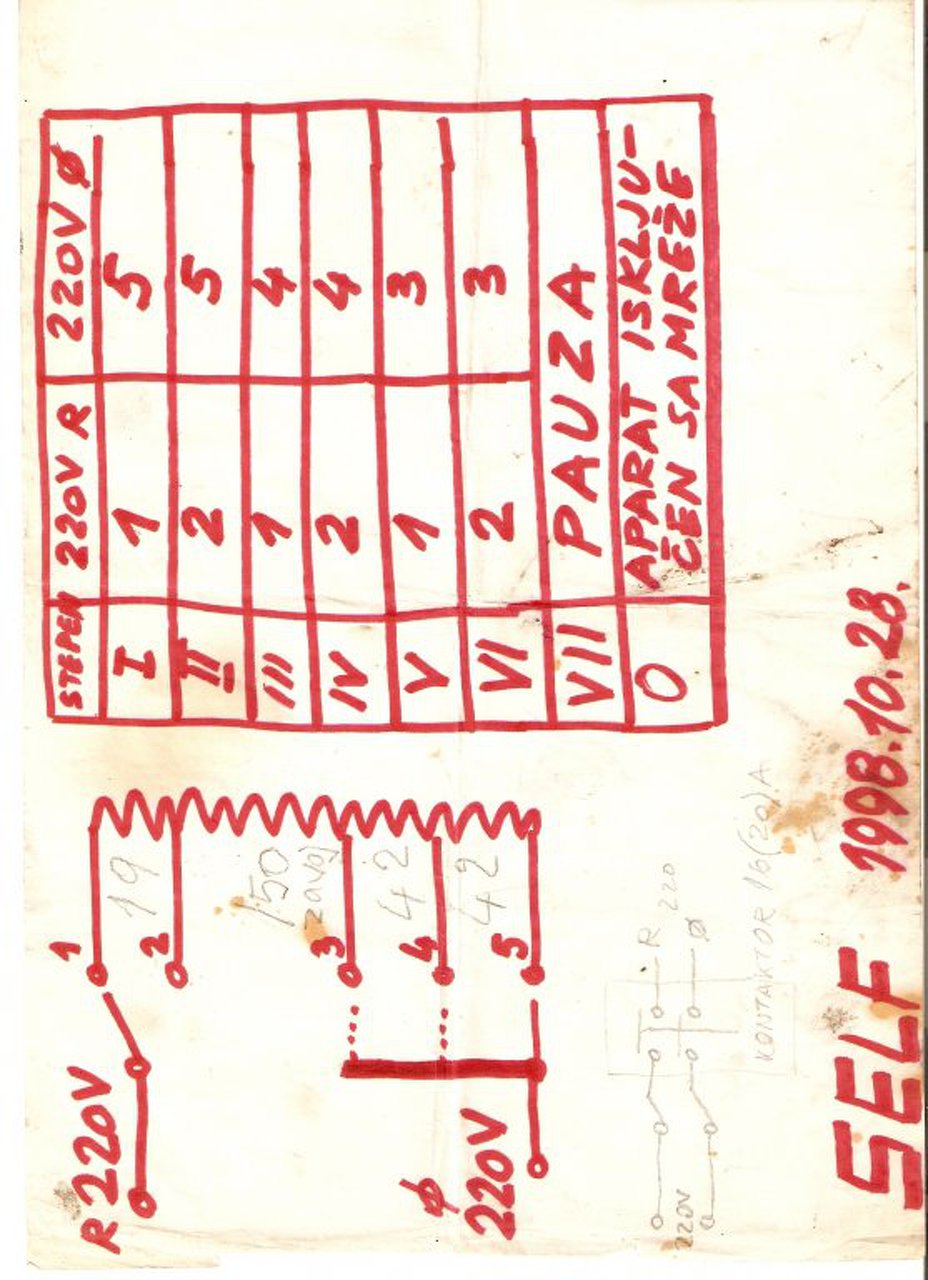 STEPEN 220V R 220V Ø
I 1 5
II 2 5
III 1 4
IV 2 4
V 1 3
VI 2 3
VII PAUZA
O APARAT ISKLJU-
ČEN SA MREŽE
R 220V
1
19
2
150
zavoj
3
42
4
42
5
Ø
220V
220V
R
220
Ø
KONTAKTOR 16(20)A
SELF 1998.10.28.